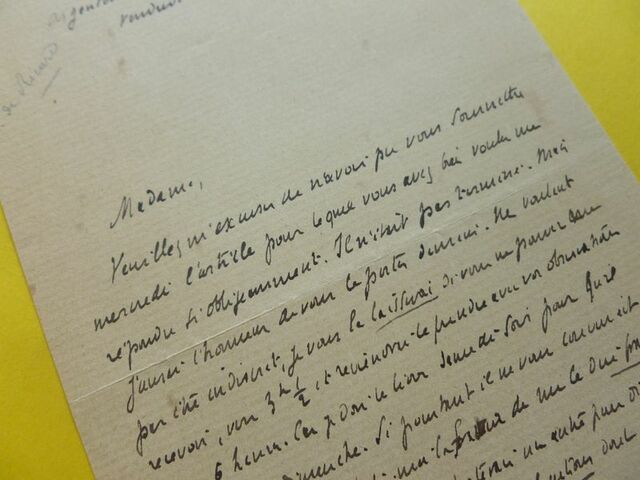 Argenteu
vendredi
de Ricard
Madame,
Veuillez m'excuser de n'avoir pu vous soumettre
mercredi l'article pour lequel vous avez bien voulu me
répondre si obligeamment. Il n'était pas terminé. Mais
j'aurai l'honneur de vous le porter demain. Ne voulant
pas être indiscret, je vous le laisserai si vous ne pouvez me
recevoir, vers 3 h 1/2, et reviendrai le prendre avec vos observations
6 heures. Car je dois le livrer samedi soir pour qu'il
dimanche. Si pourtant il ne vous convenait
la faveur de me le dire
un autre pour
dont